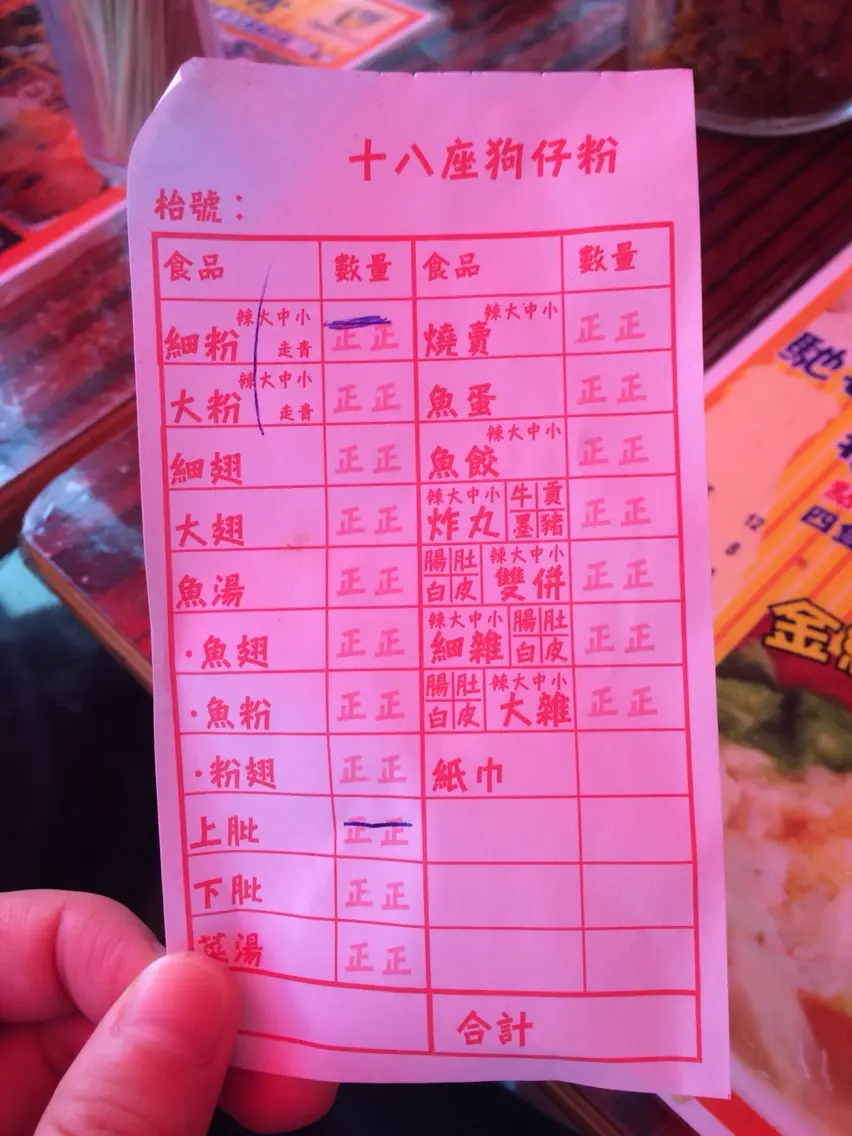 十八座狗仔粉
枱號：
食品 數量 食品 數量
細粉 辣大中小 走青 正正 燒賣 辣大中小 正正
大粉 辣大中小 走青 正正 魚蛋 正正
細翅 正正 魚餃 辣大中小 正正
大翅 正正 炸丸 辣大中小 牛貢墨豬 正正
魚湯 正正 腸肚白皮 辣大中小 雙併 正正
·魚翅 正正 辣大中小 細雜 腸肚白皮 正正
·魚粉 正正 腸肚白皮 辣大中小 大雜 正正
·粉翅 正正 紙巾
上肶 正正
下肶 正正
菜湯 正正
合計
馳
四隻
12
8
金